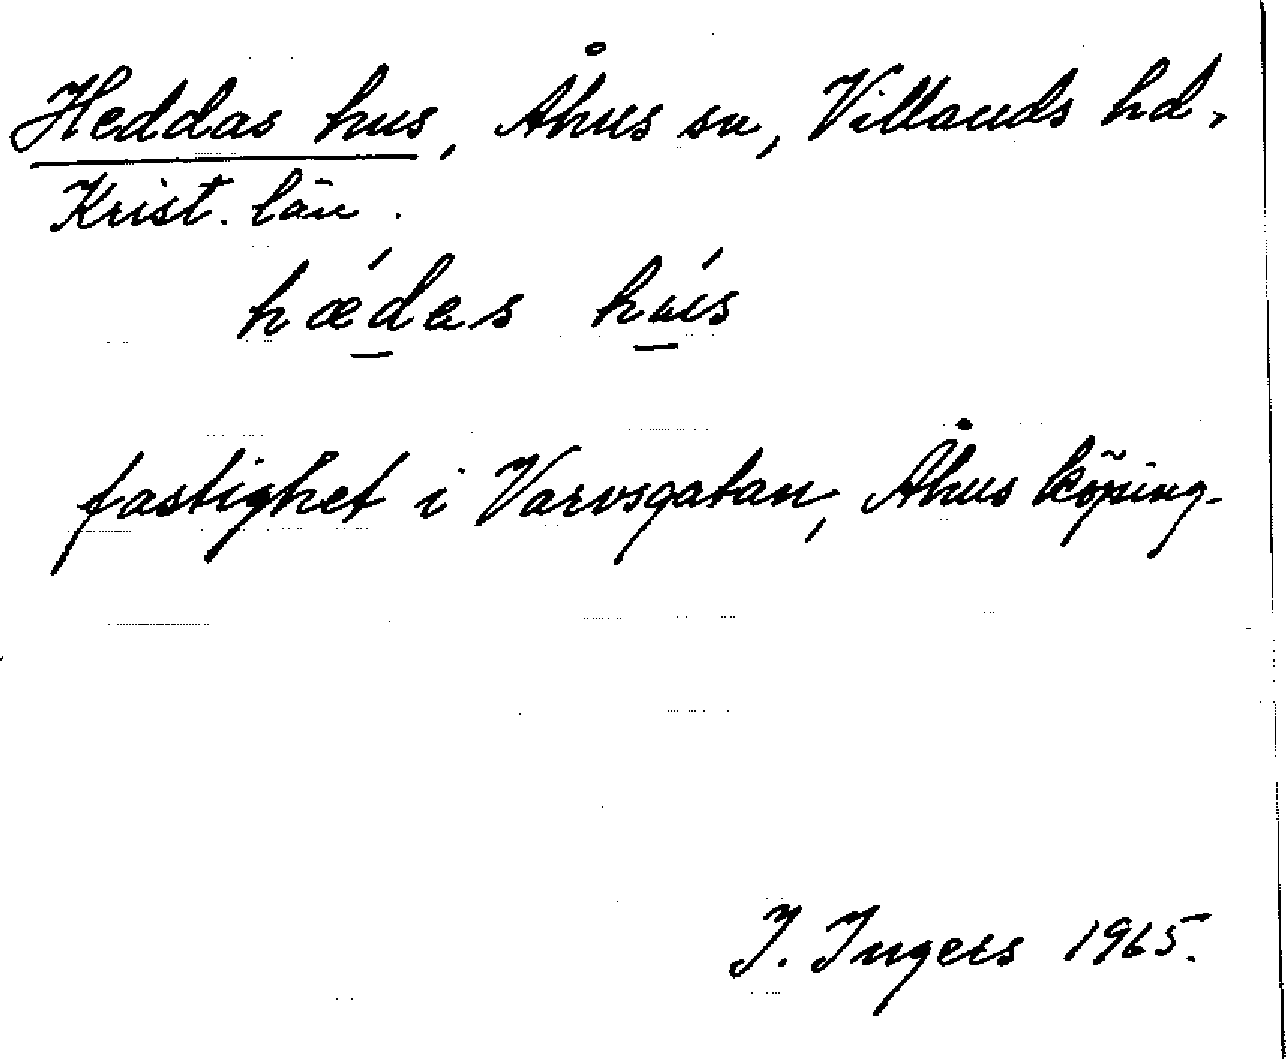 Heddas hus, Åhus sn, Villands hd,
Krist. län.
hǽdas hús
fastighet i Varvsgatan, Åhus köping.
I. Ingers 1965.